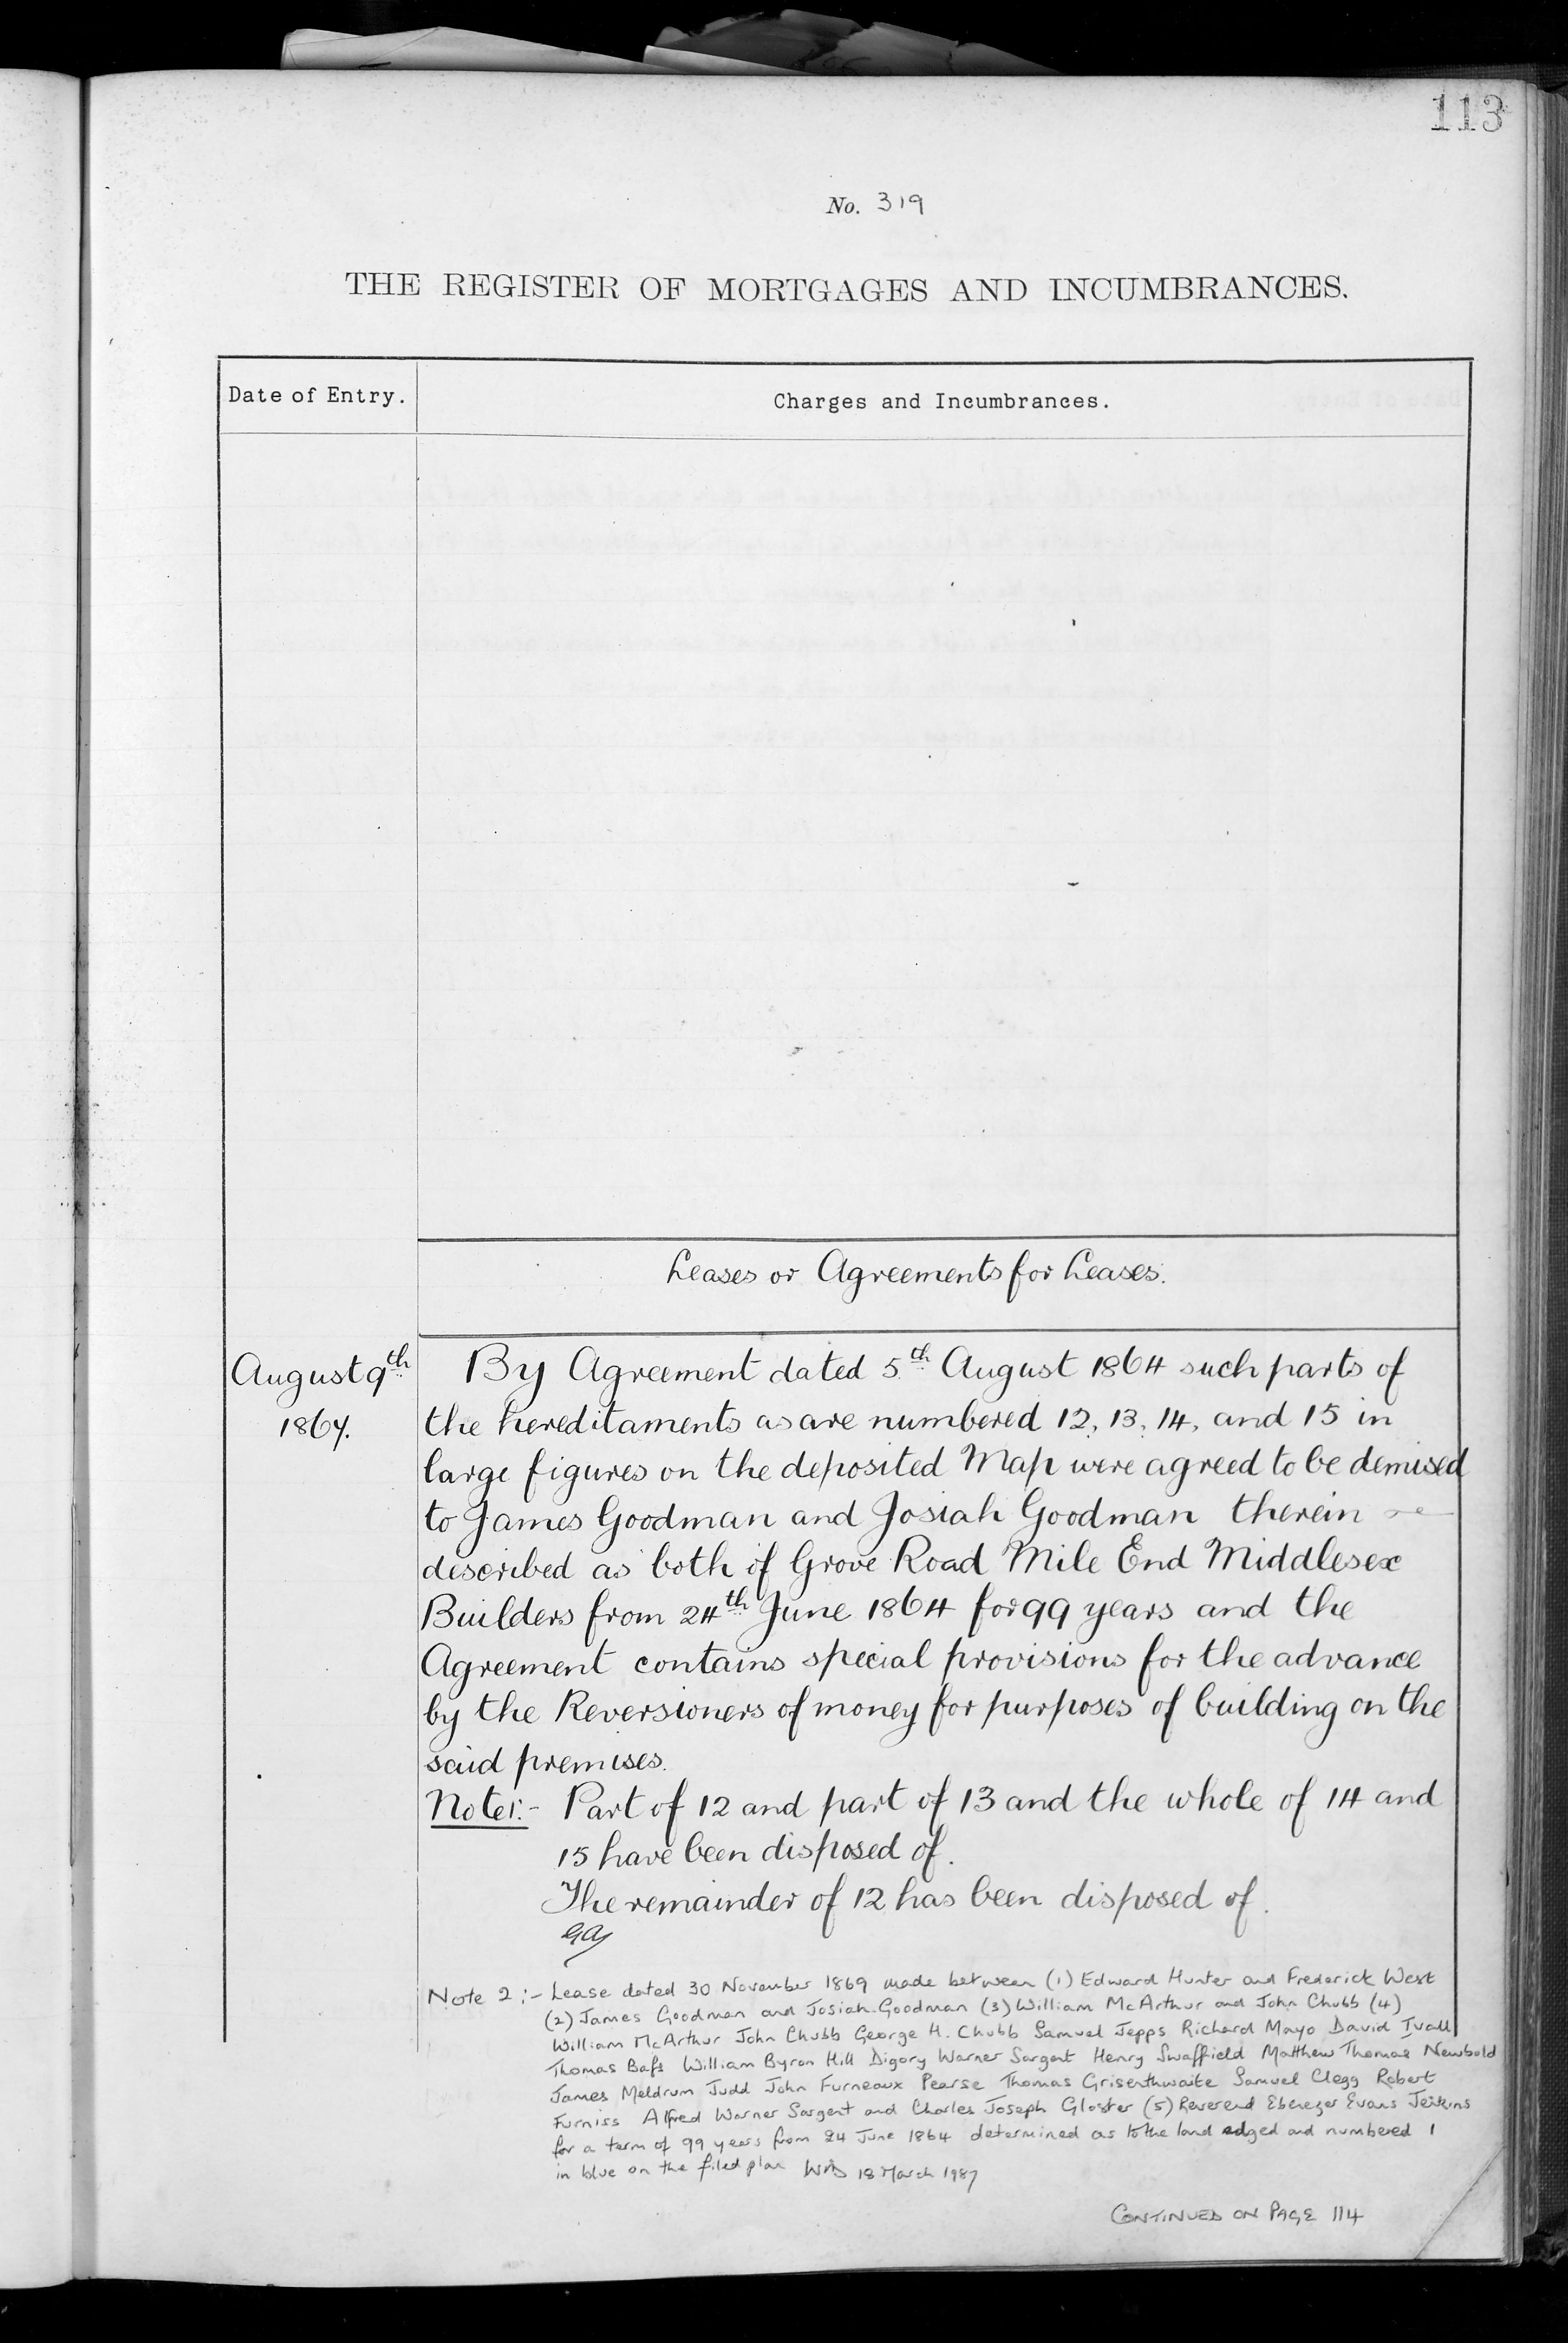 113
No. 319
THE REGISTER OF MORTGAGES AND INCUMBRANCES.
Date of Entry.
Charges and Incumbrances.
Leases or Agreements for Leases.
August 9th
1867.
By Agreement dated 5th August 1864 such parts of
the hereditaments as are numbered 12, 13, 14, and 15 in
large figures on the deposited Map were agreed to be demised
to James Goodman and Josiah Goodman therein
described as both of Grove Road Mile End Middlesex
Builders from 24th June 1864 for 99 years and the
Agreement contains special provisions for the advance
by the Reversioners of money for purposes of building on the
said premises.
Note 1:- Part of 12 and part of 13 and the whole of 14 and
15 have been disposed of.
The remainder of 12 has been disposed of.
Note 2:- Lease dated 30 November 1869 made between (1) Edward Hunter and Frederick West
(2) James Goodman and Josiah Goodman (3) William McArthur and John Chubb (4)
William McArthur John Chubb George H. Chubb Samuel Jepps Richard Mayo David Ivall
Thomas Bass William Byron Hill Digory Warner Sargent Henry Swaffield Matthew Thomas Newbold
James Meldrum Judd John Furneaux Pearse Thomas Grisenthwaite Samuel Clegg Robert
Furniss Alfred Warner Sargent and Charles Joseph Gloster (5) Reverend Ebenezer Evans Jenkins
for a term of 99 years from 24 June 1864 determined as to the land edged and numbered 1
in blue on the filed plan 18 March 1987
CONTINUED ON PAGE 114